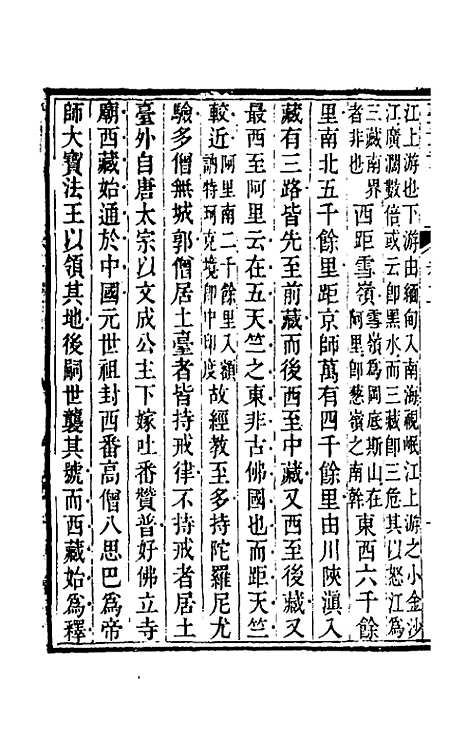 江上游也下游由緬甸入南海視岷江上游之小金沙
江廣濶數倍或云即黑水而三藏即三危其以怒江爲
三藏南界者非也西距雪嶺雪嶺爲岡底斯山在阿里即葱嶺之南幹東西六千餘
里南北五千餘里距京師萬有四千餘里由川陝滇入
藏有三路皆先至前藏而後西至中藏又西至後藏又
最西至阿里云在五天竺之東非古佛國也而距天竺
較近阿里南二千餘里入額訥特珂克境即中印度故經教至多持陀羅尼尤
驗多僧無城郭僧居土臺者皆持戒律不持戒者居土
臺外自唐太宗以文成公主下嫁吐番贊普好佛立寺
廟西藏始通於中國元世祖封西番高僧八思巴爲帝
師大寶法王以領其地後嗣世襲其號而西藏始爲釋